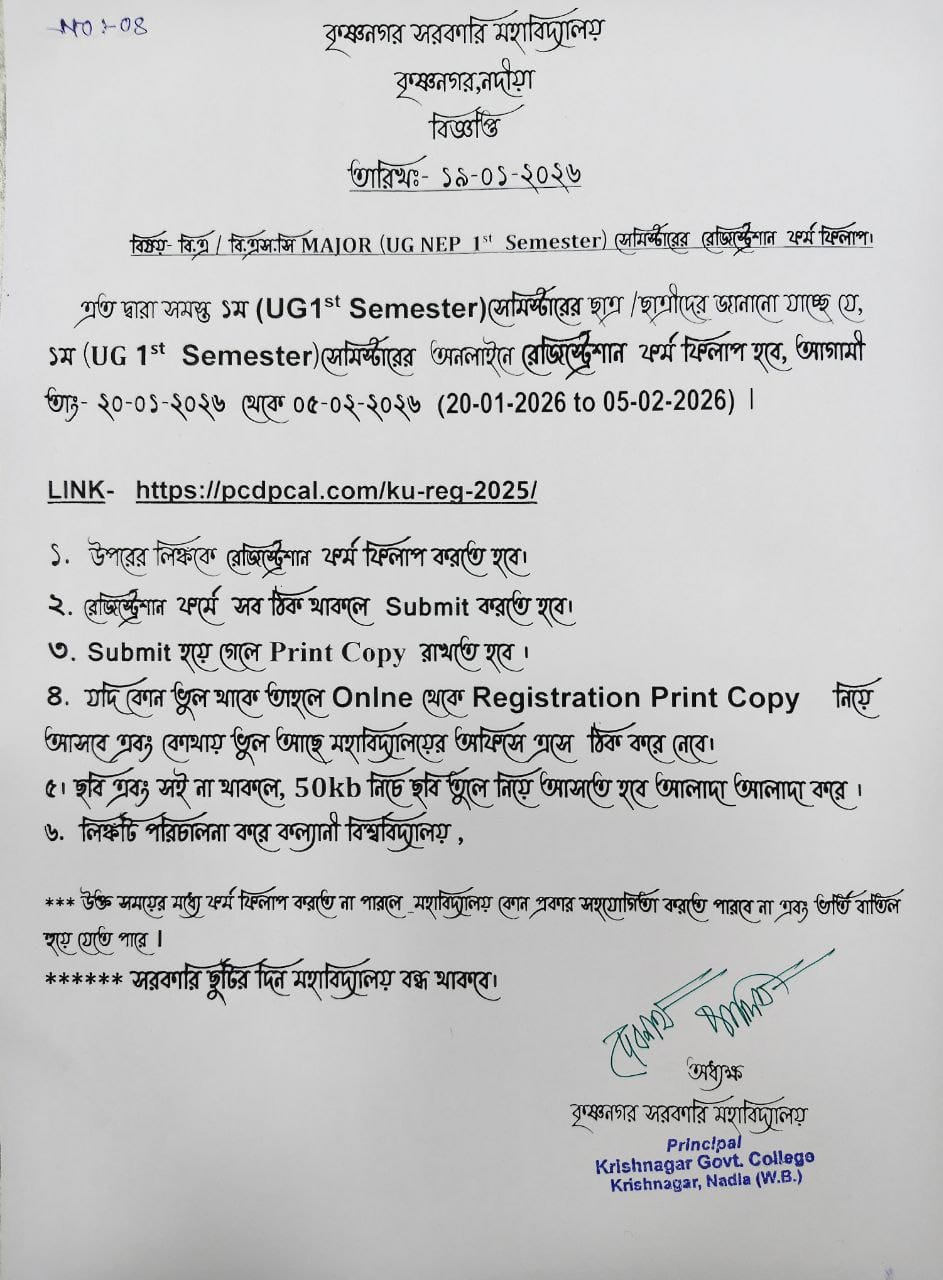 NO:-08
কৃষ্ণনগর সরকারি মহাবিদ্যালয়
কৃষ্ণনগর,নদীয়া
বিজ্ঞপ্তি
তারিখঃ- ১৯-০১-২০২৬
বিষয়- বি.এ / বি.এস.সি MAJOR (UG NEP 1st Semester) সেমিস্টারের রেজিস্ট্রেশান ফর্ম ফিলাপ।
এত দ্বারা সমস্ত ১ম (UG1st Semester)সেমিস্টারের ছাত্র /ছাত্রীদের জানানো যাচ্ছে যে,
১ম (UG 1st Semester)সেমিস্টারের অনলাইনে রেজিস্ট্রেশান ফর্ম ফিলাপ হবে, আগামী
তাং- ২০-০১-২০২৬ থেকে ০৫-০২-২০২৬ (20-01-2026 to 05-02-2026) |
LINK- https://pcdpcal.com/ku-reg-2025/
১. উপরের লিঙ্ককে রেজিস্ট্রেশান ফর্ম ফিলাপ করতে হবে।
২. রেজিস্ট্রেশান ফর্মে সব ঠিক থাকলে Submit করতে হবে।
৩. Submit হয়ে গেলে Print Copy রাখতে হবে ।
৪. যদি কোন ভুল থাকে তাহলে Onlne থেকে Registration Print Copy নিয়ে
আসবে এবং কোথায় ভুল আছে মহাবিদ্যালয়ের অফিসে এসে ঠিক করে নেবে।
৫। ছবি এবং সই না থাকলে, 50kb নিচে ছবি তুলে নিয়ে আসতে হবে আলাদা আলাদা করে ।
৬. লিঙ্কটি পরিচালনা করে কল্যানী বিশ্ববিদ্যালয় ,
*** উক্ত সময়ের মধ্যে ফর্ম ফিলাপ করতে না পারলে মহাবিদ্যালয় কোন প্রকার সহযোগিতা করতে পারবে না এবং ভর্তি বাতিল
হয়ে যেতে পারে |
****** সরকারি ছুটির দিন মহাবিদ্যালয় বন্ধ থাকবে।
অধ্যক্ষ
কৃষ্ণনগর সরকারি মহাবিদ্যালয়
Principal
Krishnagar Govt. College
Krishnagar, Nadia (W.B.)